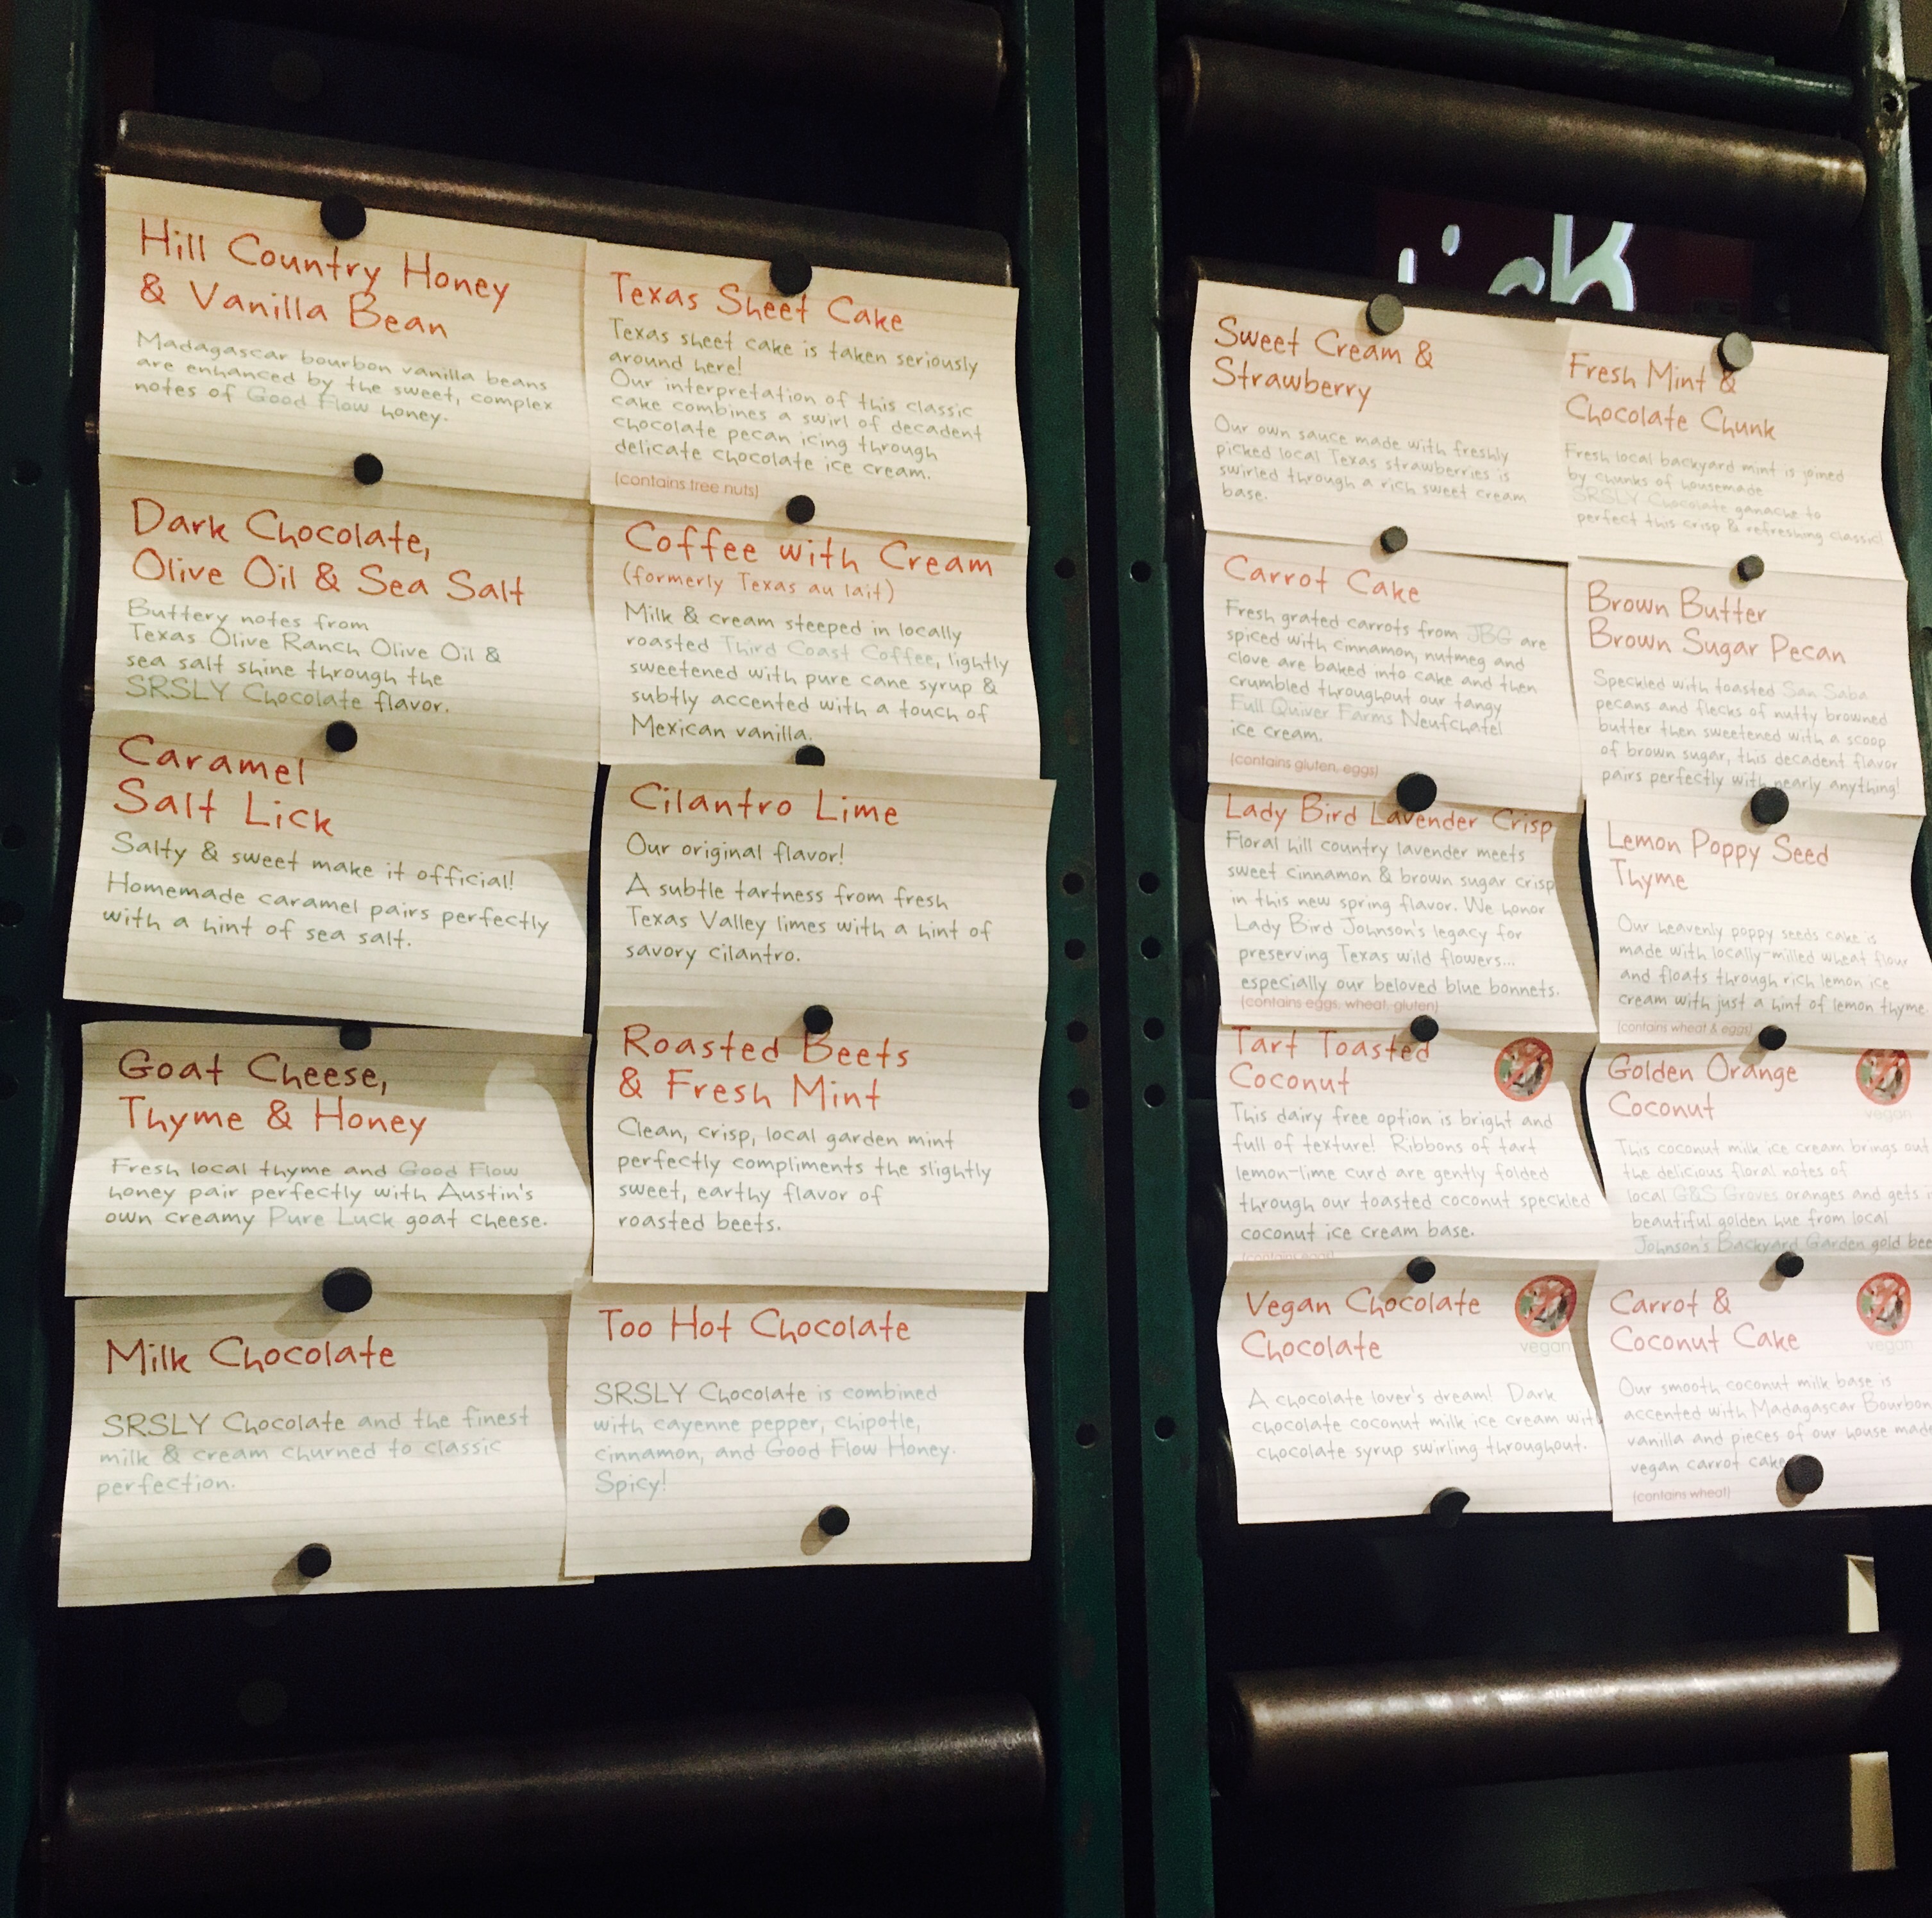 Hill Country Honey
& Vanilla Bean
Madagascar bourbon vanilla beans
are enhanced by the sweet, complex
notes of Good Flow honey.
Texas Sheet Cake
Texas sheet cake is taken seriously
around here!
Our interpretation of this classic
cake combines a swirl of decadent
chocolate pecan icing through
delicate chocolate ice cream.
(contains tree nuts)
Dark Chocolate,
Olive Oil & Sea Salt
Buttery notes from
Texas Olive Ranch Olive Oil &
sea salt shine through the
SRSLY Chocolate flavor.
Coffee with Cream
(formerly Texas au lait)
Milk & cream steeped in locally
roasted Third Coast Coffee, lightly
sweetened with pure cane syrup &
subtly accented with a touch of
Mexican vanilla.
Caramel
Salt Lick
Salty & sweet make it official!
Homemade caramel pairs perfectly
with a hint of sea salt.
Cilantro Lime
Our original flavor!
A subtle tartness from fresh
Texas Valley limes with a hint of
savory cilantro.
Goat Cheese,
Thyme & Honey
Fresh local thyme and Good Flow
honey pair perfectly with Austin's
own creamy Pure Luck goat cheese.
Roasted Beets
& Fresh Mint
Clean, crisp, local garden mint
perfectly compliments the slightly
sweet, earthy flavor of
roasted beets.
Milk Chocolate
SRSLY Chocolate and the finest
milk & cream churned to classic
perfection.
Too Hot Chocolate
SRSLY Chocolate is combined
with cayenne pepper, chipotle,
cinnamon, and Good Flow Honey.
Spicy!
Sweet Cream &
Strawberry
Our own sauce made with freshly
picked local Texas strawberries is
swirled through a rich sweet cream
base.
Fresh Mint &
Chocolate Chunk
Fresh local backyard mint is joined
by chunks of housemade
SRSLY Chocolate ganache to
perfect this crisp & refreshing classic!
Carrot Cake
Fresh grated carrots from JBG are
spiced with cinnamon, nutmeg and
clove are baked into cake and then
crumbled throughout our tangy
Full Quiver Farms Neufchatel
ice cream.
(contains gluten, eggs)
Brown Butter
Brown Sugar Pecan
Speckled with toasted San Saba
pecans and flecks of nutty browned
butter then sweetened with a scoop
of brown sugar, this decadent flavor
pairs perfectly with nearly anything!
Lady Bird Lavender Crisp
Floral hill country lavender meets
sweet cinnamon & brown sugar crisp
in this new spring flavor. We honor
Lady Bird Johnson's legacy for
preserving Texas wild flowers...
especially our beloved blue bonnets.
(contains eggs, wheat, gluten)
Lemon Poppy Seed
Thyme
Our heavenly poppy seeds cake is
made with locally-milled wheat flour
and floats through rich lemon ice
cream with just a hint of lemon thyme
(contains wheat & eggs)
Tart Toasted
Coconut
This dairy free option is bright and
full of texture! Ribbons of tart
lemon-lime curd are gently folded
through our toasted coconut speckled
coconut ice cream base.
Golden Orange
Coconut
vegan
This coconut milk ice cream brings out
the delicious floral notes of
local G&S Groves oranges and gets
beautiful golden hue from local
Johnson's Backyard Garden gold bee
Vegan Chocolate
Chocolate
vegan
A chocolate lover's dream! Dark
chocolate coconut milk ice cream with
chocolate syrup swirling throughout.
Carrot &
Coconut Cake
vegan
Our smooth coconut milk base is
accented with Madagascar Bourbon
vanilla and pieces of our house made
vegan carrot cake
(contains wheat)